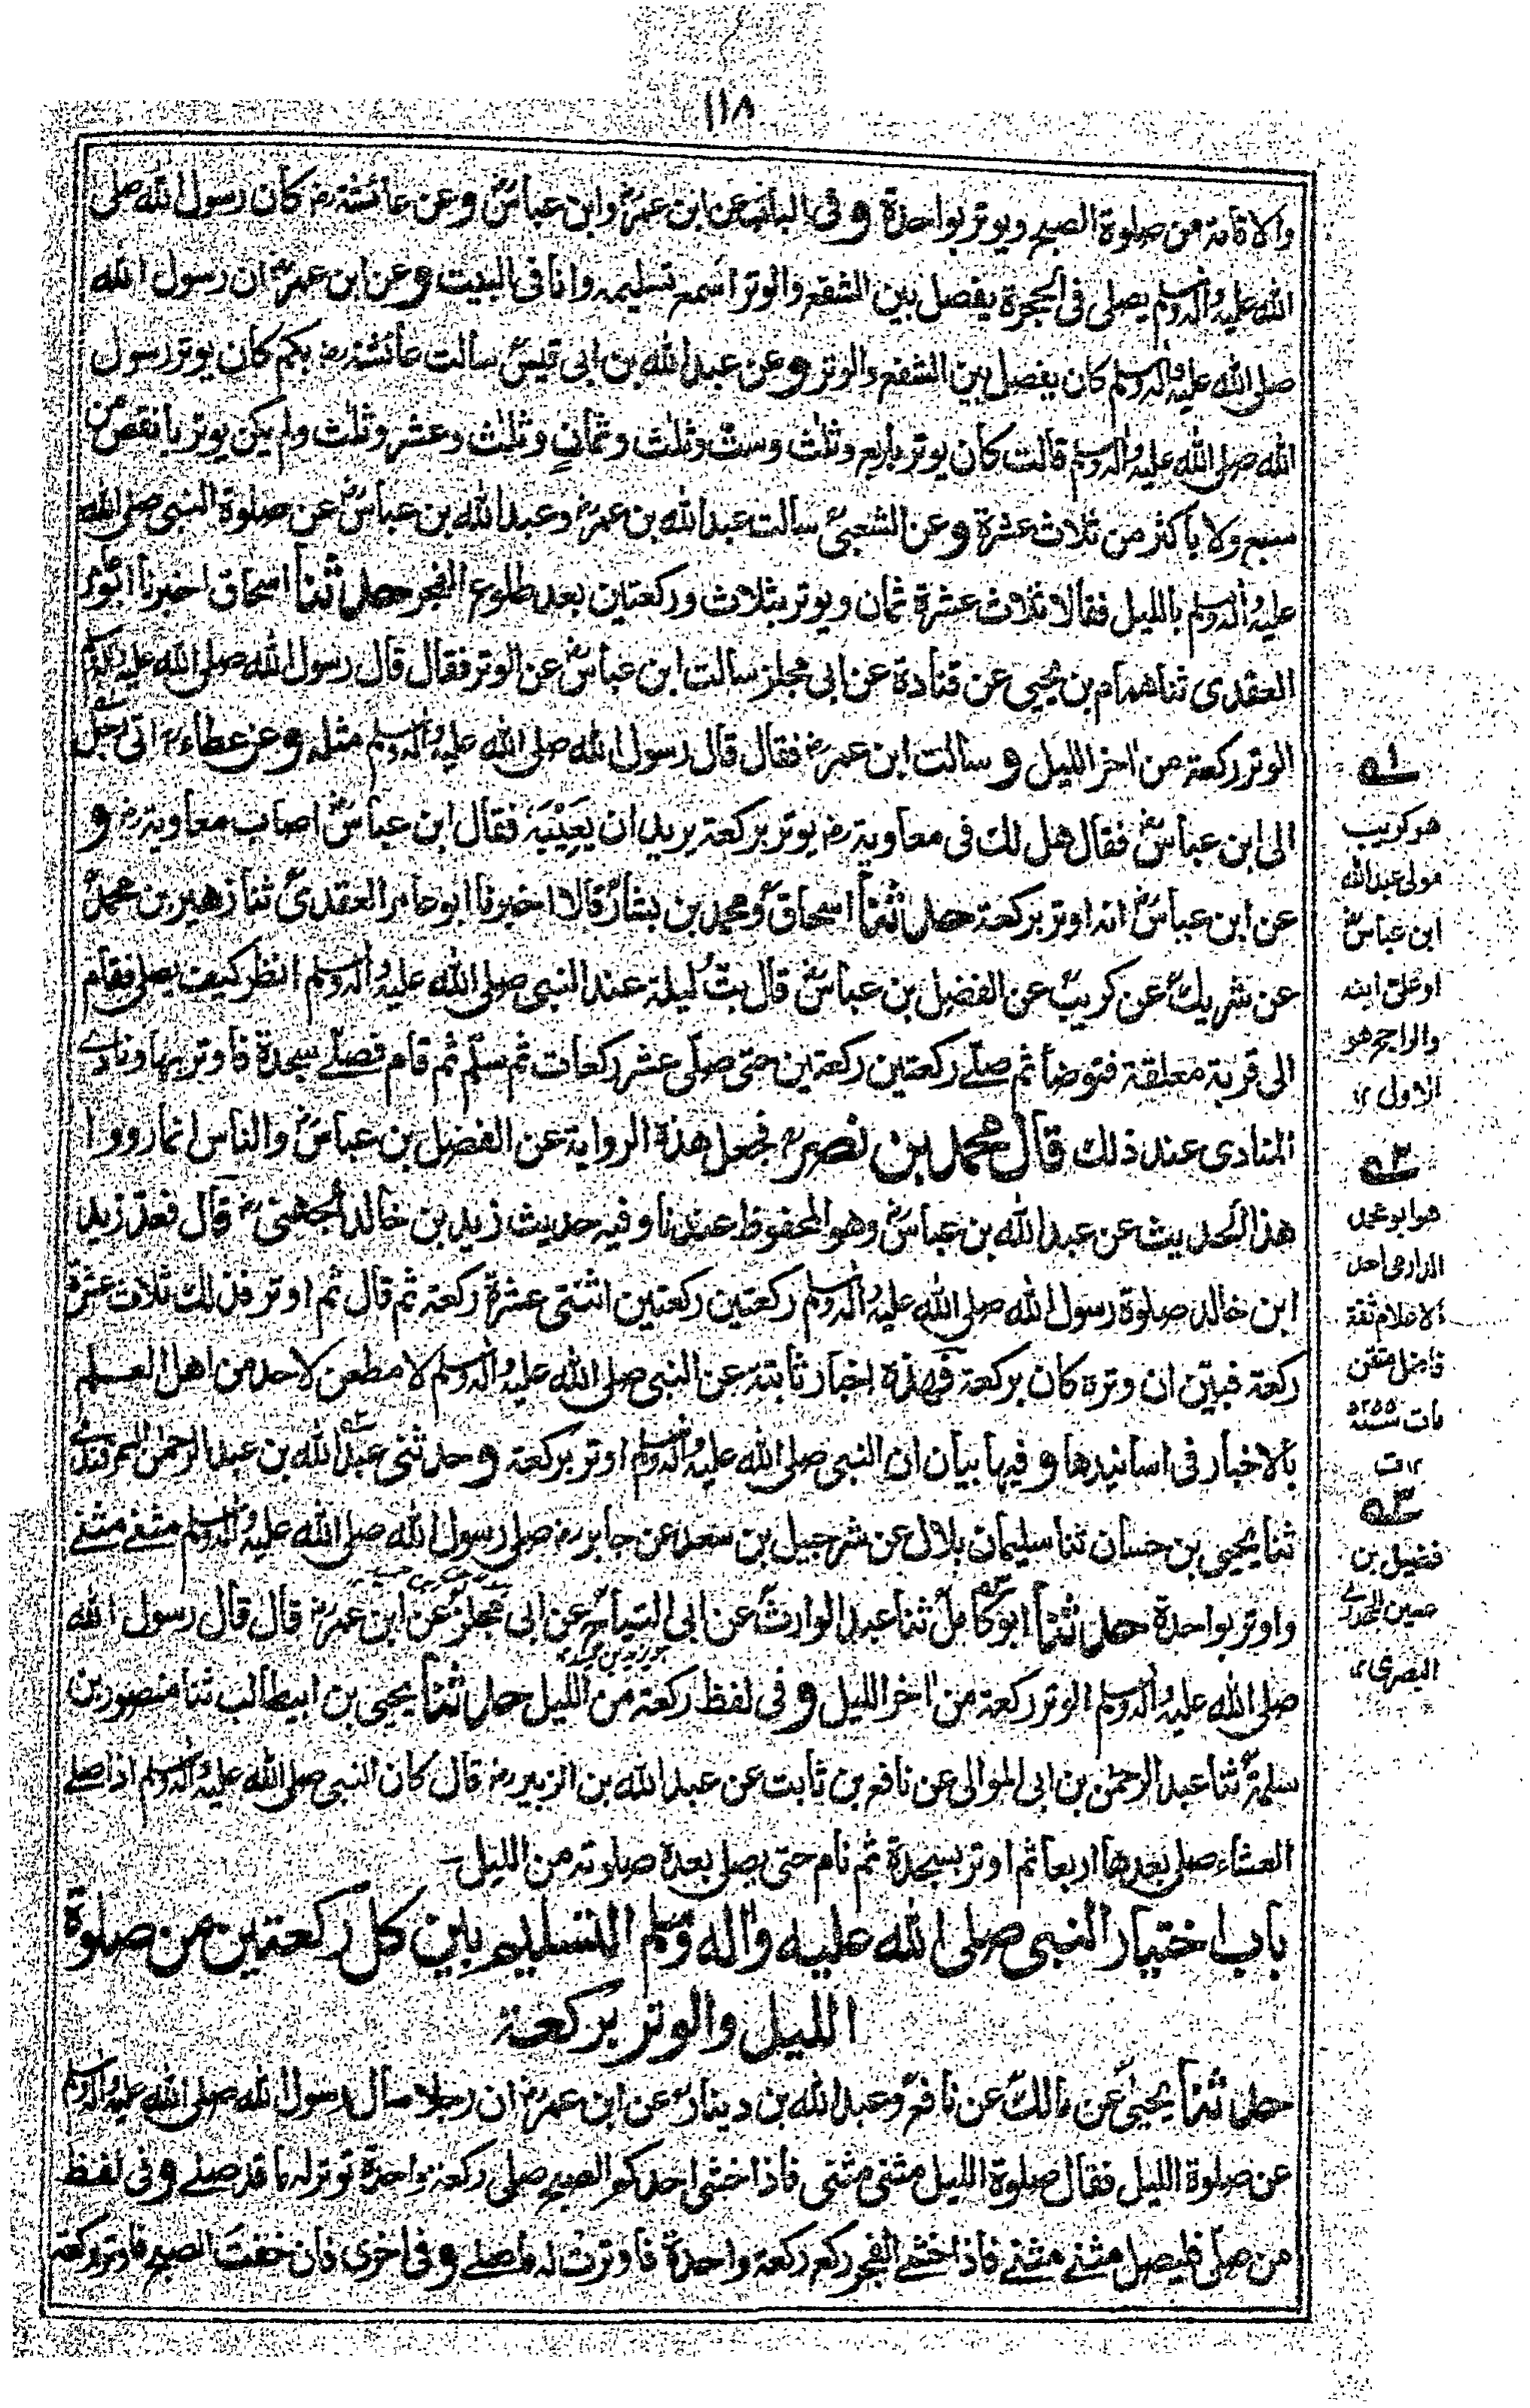 ١١٨
والاقامة من صلوة الصبح ويوتر بواحدة وفى الباب عن ابن عمرؓ وابن عباسؓ وعن عائشةرض كان رسول الله صلى
الله عليه واله وسلم يصلى فى الحجرة يفصل بين الشفع والوتر اسمع تسليمه وانا فى البيت وعن ابن عمرؓ ان رسول الله
صلى الله عليه واله وسلم كان يفصل بين الشفع والوتر وعن عبد الله بن ابى قيسؒ سالت عائشةرض بكم كان يوتر رسول
الله صلى الله عليه واله وسلم قالت كان يوتر باربع وثلث وست وثلث وثمانٍ وثلث وعشر وثلث ولم يكن يوتر بانقص من
سبع ولا باكثر من ثلاث عشرة وعن الشعبىؒ سالت عبد الله بن عمرؓ وعبد الله بن عباسؓ عن صلوة النبى صلى الله
عليه واله وسلم بالليل فقالا ثلاث عشرة ثمان ويوتر بثلاث وركعتين بعد طلوع الفجر حدثنا اسحاق اخبرنا ابو
العقدى ثنا همام بن يحيى عن قتادة عن ابى مجلز سالت ابن عباسؓ عن الوتر فقال قال رسول الله صلى الله عليه واله وسلم
الوتر ركعة من اخر الليل وسالت ابن عمررض فقال قال رسول الله صلى الله عليه واله وسلم مثله وعن عطاءرح اتى رجل
الى ابن عباسؓ فقال هل لك فى معاويةرض يوتر بركعة يريد ان يَعِيْبَهٗ فقال ابن عباسؓ اصاب معاويةرض و
عن ابن عباسؓ انه اوتر بركعة حدثنا اسحاقؒ ومحمد بن بشارؒ قالا اخبرنا ابو عامر العقدىؒ ثنا زهير بن محمدؒ
عن شريكؒ عن كريبؒ عن الفضل بن عباسؓ قال بتّ ليلة عند النبى صلى الله عليه واله وسلم انظر كيف يصلى فقام
الى قربة معلقة فتوضأ ثم صلّے ركعتين ركعتين حتى صلّى عشر ركعات ثم سلّم ثم قام فصلّے سجدة فاوتر بها ونادے
المنادى عند ذلك قال محمد بن نصررح فجعل هذه الرواية عن الفضل بن عباسؓ والناس انما رووا
هذا الحديث عن عبد الله بن عباسؓ وهو المحفوظ عندنا وفيه حديث زيد بن خالد الجهنىؓ قال فعدّ زيد
ابن خالد صلوة رسول الله صلى الله عليه واله وسلم ركعتين ركعتين اثنتى عشرة ركعة ثم قال ثم اوتر فذلك ثلاث عشرة
ركعة فبيّن ان وتره كان بركعة فهذه اخبار ثابتة عن النبى صلى الله عليه واله وسلم لا مطعن لاحد من اهل العلم
بالاخبار فى اسانيدها وفيها بيان ان النبى صلى الله عليه واله وسلم اوتر بركعة وحدثنى عبد الله بن عبد الرحمٰن السمرقندے
ثنا يحيى بن حسان ثنا سليمان بلال عن شرحبيل بن سعد عن جابررض صلى رسول الله صلى الله عليه واله وسلم مثنے مثنے
واوتر بواحدة حدثنا ابو كاملؒ ثنا عبد الوارثؒ عن ابى التياحؒ عن ابى مجلزؒ عن ابن عمرؓ قال قال رسول الله
صلى الله عليه واله وسلم الوتر ركعة من اخر الليل وفى لفظ ركعة من الليل حدثنا يحيى بن ابيطالب ثنا منصور بن
سلمةؒ ثنا عبد الرحمٰن بن ابى الموالى عن نافع بن ثابت عن عبد الله بن الزبيررض قال كان النبى صلى الله عليه واله وسلم اذا صلے
العشاء صلى بعدها اربعا ثم اوتر بسجدة ثم نام حتى يصلى بعده صلوته من الليل
باب اختيار النبى صلى الله عليه واله وسلم التسليم بين كل ركعتين من صلوة
الليل والوتر بركعة
حدثنا يحيىؒ عن مالكؒ عن نافعؒ وعبد الله بن دينارؒ عن ابن عمرؓ ان رجلا سال رسول الله صلى الله عليه واله وسلم
عن صلوة الليل فقال صلوة الليل مثنى مثنى فاذا خشى احدكم الصبح صلى ركعة واحدة توتر له ما قد صلے وفى لفظ
من صلى فليصل مثنے مثنے فاذا خشے الفجر ركع ركعة واحدة فاوترت له ما صلے وفى اخرى فان خفت الصبح فاوتر بركعة
ـ١ـه
هو كريب
مولى عبد الله
ابن عباسؓ
او على ابنه
والراجح هو
الاول ١٢
ـ٢ـه
هو ابو محمد
الدارمى احد
الاعلام ثقة
فاضل متقن
مات سنة ٢٥٥ه
١٢ت
ـ٣ـه
فضيل بن
حسين الجحدرے
البصرى ١٢